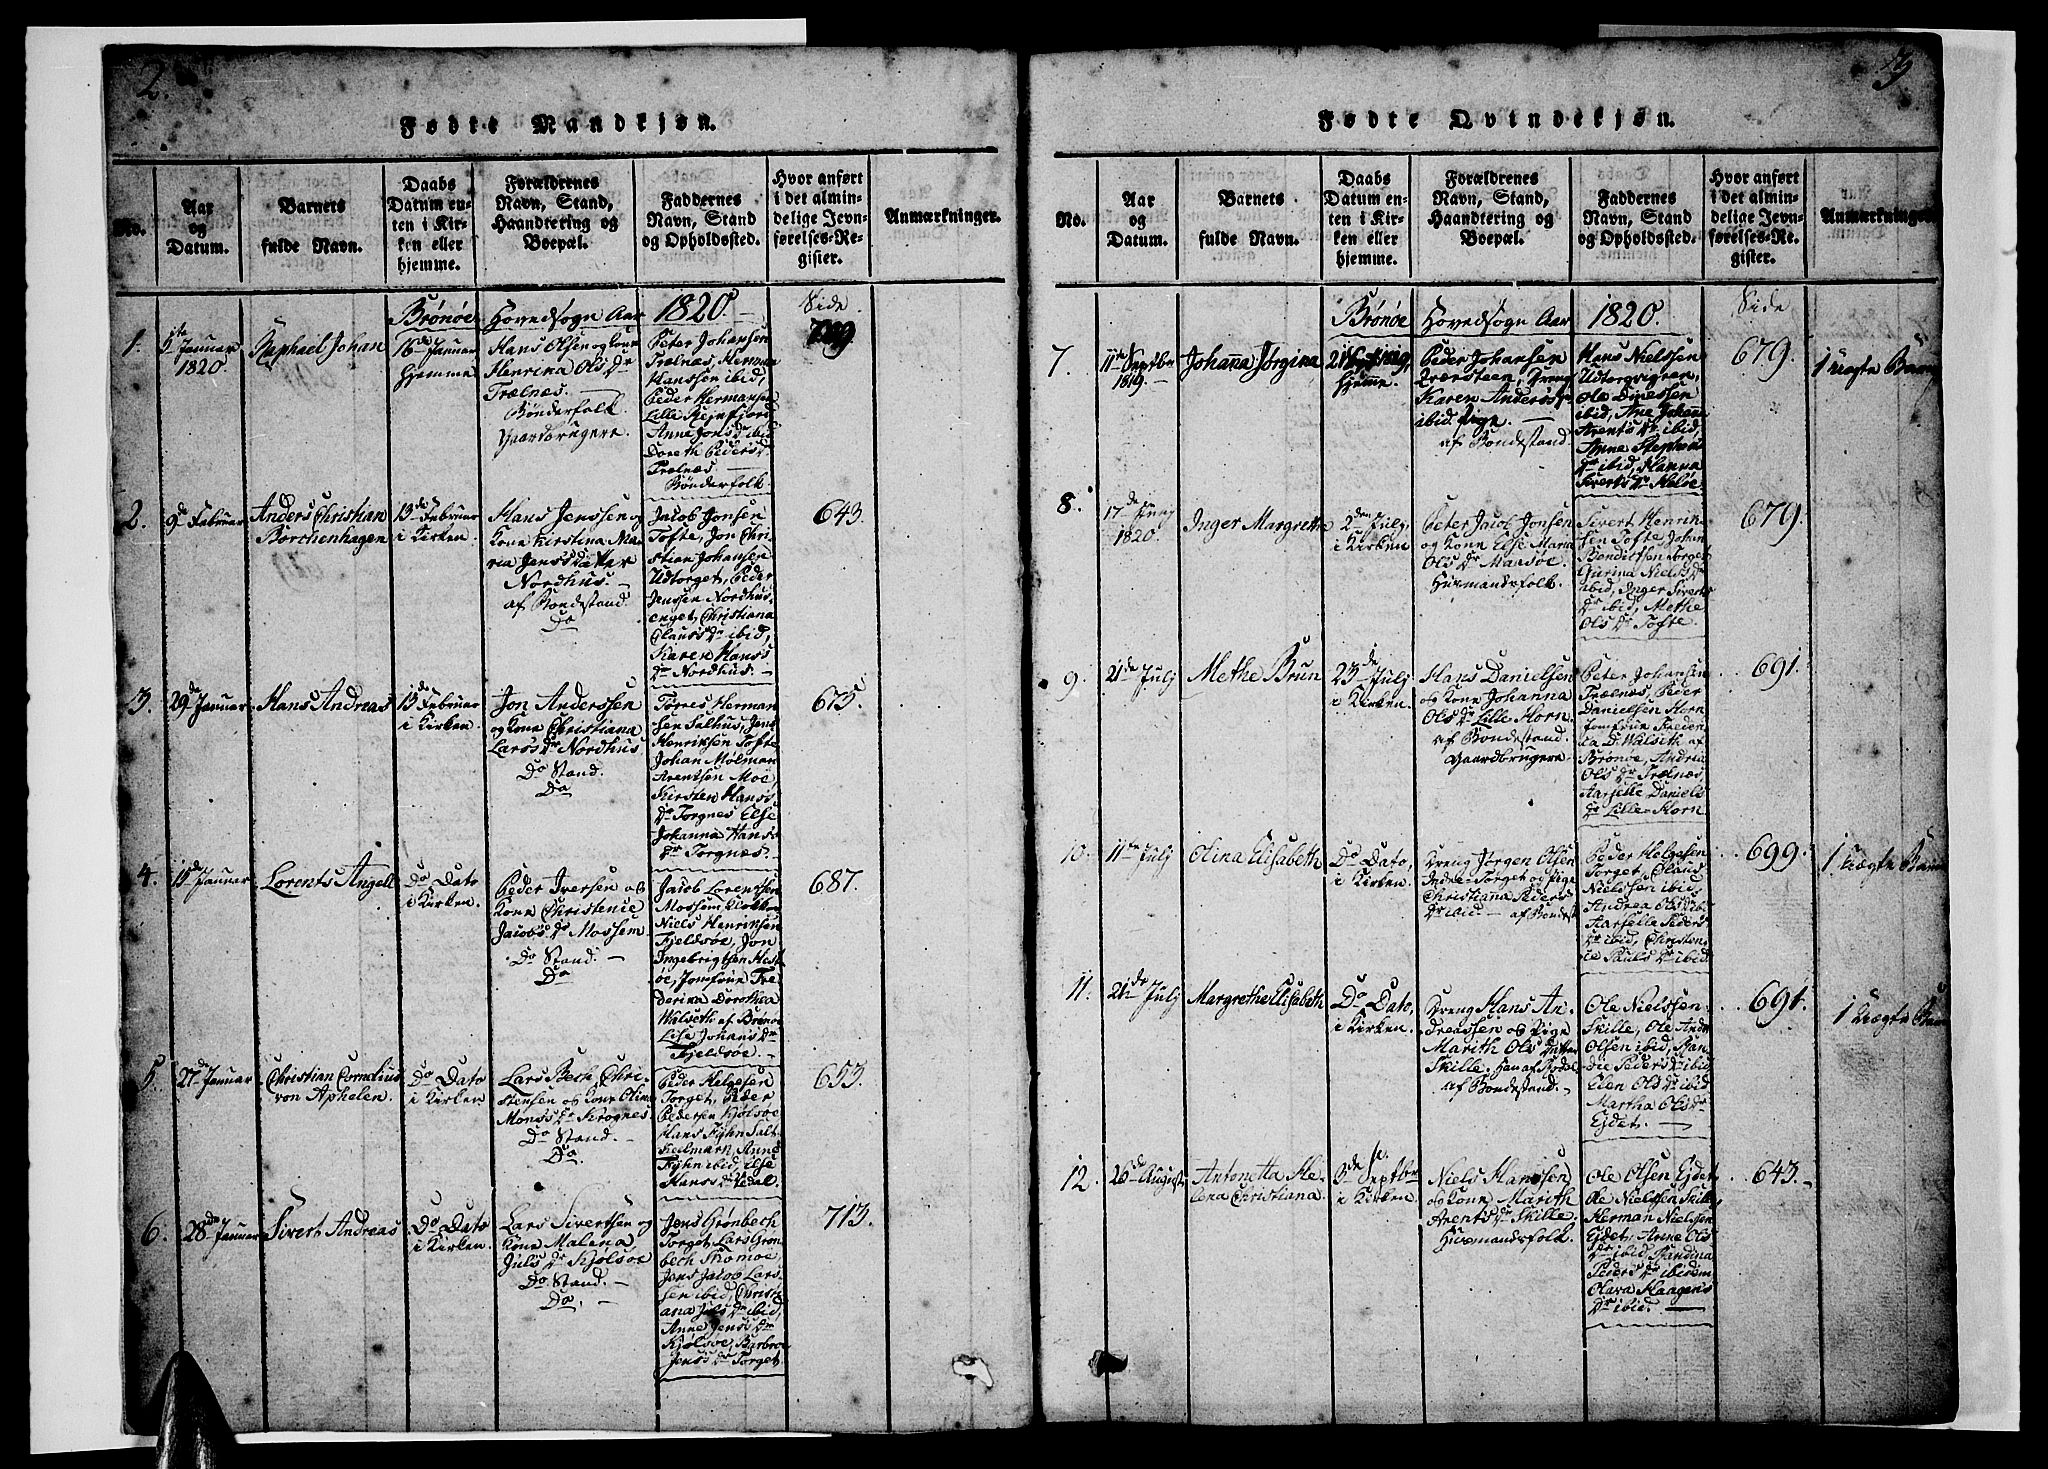 2.
Fødte Mandkjøn.
No.
Aar
og
Datum.
Barnets
fulde Navn.
Daabs
Datum en-
ten i Kir-
ken eller
hjemme.
Forældrenes
Navn, Stand,
Haandtering og
Boepæl.
Faddernes
Navn, Stand
og Opholdssted.
Hvor anført
i det almin-
delige Jevn-
førelses-Re-
gister.
Anmærkninger.
Brønøe Hovedsogn Aar 1820.
Side
1.
5te Januar
1820.
Raphael Johan
16de Januar
hjemme
Hans Olsen og Kone
Henrina Ols Dr
Trælnæs.
Bønderfolk.
Gaardbrugere.
Peter Johansen
Trælnæs, Herman
Hanssen ibid,
Peder Hermansen
Lille Reinfjord
Anne Jons Dr ibid
Doreth Peders Dr
Trælnæs
Bønderfolk.
2.
9de Februar
Anders Christian
Borchenhagen
13de Februar
i Kirken
Hans Jenssen og
Kone Kirstina Ma-
ria Jens Datter
Nordhus.
af Bondestand.
Do
Jacob Jonsen
Tofte, Jon Chri-
stian Johansen
Udtorget, Peder
Jenssen Nordhus-
enget, Christiana
Claus Dr ibid,
Karen Hans
Dr Nordhus.
643.
3.
29de Januar
Hans Andreas
13de Februar
i Kirken.
Jon Anderssen
og Kone Christiana
Lars Dr Nordhus
Do Stand.
Do
Torres Herman
sen Salhus, Jens
Henriksen Tofte
Johan Mølman
Arentsen Moe
Kirsten Hans
Dr Torgnes Else
Johanna Hans
Dr Torgnæs.
675.
4.
15de Januar
Lorents Angell
Do Dato
i Kirken.
Peder Iversen og
Kone Christence
Jacobs Dr Mossem.
Do Stand.
Do
Jacob Lorentsen
Mossem Klokker
Niels Henriksen
Fjeldsøe, Jon
Ingebrigtsen Hest
øe, Jomfrue Fre
derina Dorothea
Walseth af Brønøe
Lise Johans Dr
Fjeldsøe.
687.
5.
27de Januar
Christian Cornelius
von Aphelen.
Do Dato
i Kirken
Lars Bech, Chri-
stensen og Kone Olina
Mons Dr Krognes
Do Stand.
Do
Peder Helgesen
Torget, Peder
Pedersen Kjølsøe
Hans Fyhn Salt
hedmark, Anne
Fyhn ibid, Else
Hans Dr Sedal.
653.
6.
28de Januar
Sivert Andreas
Do Dato
i Kirken.
Lars Sivertsen og
Kone Malena
Juls Dr Kjølsøe
Do Stand.
Do.
Jens Grønbech
Torget, Lars Grøn
bech Thomøe
Jens Jacob Lars-
sen ibid, Christi
ana Juls Dr ibid,
Anne Jens Dr
Kjølsøe, Barbroe
Jens Dr Torget
713.
Fødte Qvindekjøn.
No.
Aar
og
Datum.
Barnets
fulde Navn.
Daabs
Datum en-
ten i Kir-
ken eller
hjemme.
Forældrenes
Navn, Stand,
Haandtering og
Boepæl.
Faddernes
Navn, Stand
og Opholdssted.
Hvor anført
i det almin-
delige Jevn-
førelses-Re-
gister.
Anmærkninger.
Brønøe Hovedsogn Aar 1820.
Side
7.
11te Septbr
1819.
Johana Jørgina
hjemme.
Peder Johansen
Qværsteen, Dreng
Karen Anders Dr
ibid Pige.
af Bondestand.
Hans Nielssen
Udtorgvigen,
Ole Dinessen
ibid, Ane Johana
Arents Dr ibid,
Anne Stephens
Dr ibid, Hanna
Siverts Dr Heløe
679.
1 Uægte Barn
8.
17de Juny
1820.
Inger Margrethe
2den July,
i Kirken
Peter Jacob Jonsen
og Kone Else Maria
Ols Dr Marsøe.
Huusmandsfolk.
Sivert Henrik-
sen Tofte, Johan
Bendictsen Torget
Gurina Niels Dr
ibid, Inger Siverts
Dr ibid, Methe
Ols Dr Tofte.
679.
9.
21de Julj
Methe Brun
23de Julj
i Kirken.
Hans Danielsen
og Kone Johanna
Ols Dr Lille Horn.
af Bondestand.
Gaardbrugere
Peter Johansen
Trælnæs, Peder
Danielsen Horn
Jomfrue Frederi
ca D. Walseth af
Brønøe, Andria
Ols Dr Trælnæs
Aarselle Daniels
Dr Lille-Horn
691.
10.
11te Julj
Olina Elisabeth
Do Dato,
i Kirken.
Dreng Jørgen Olsen
Indre-Torget og Pige
Christiana Peders
Dr ibid. af Bondest
Peder Helgesen
Torget, Claus
Nielssen ibid,
Andrea Ols Dr ibid
Aarselle Peders
Dr ibid, Christen
ce Pauls Dr ibid
699.
1 Uægte Barn
11.
21de Julj
Margrethe Elisabeth
Do Dato,
i Kirken.
Dreng Hans An-
dreassen og Pige
Marith Ols Datter
Skille.
af Bondestand.
Ole Nielssen
Skille, Ole Andr
Olsen ibid, Ran
die Peders Dr ibid
Elen Ols Dr ibid
Martha Ols Dr
Ejdet.
691.
1 Uægte Barn
12.
26de August
Antonetta He-
lena Christiana.
3de Septbr
i Kirken
Niels Hanssen
og Kone Marith
Arents Dr Skille
Huusmandsfolk.
Ole Olsen Ejdet,
Ole Nielssen Skille
Herman Nielssen
Ejdet, Anne Ols
Dr ibid, Randina
Peders Dr ibidem
Olava Haagens
Dr ibid.
643.